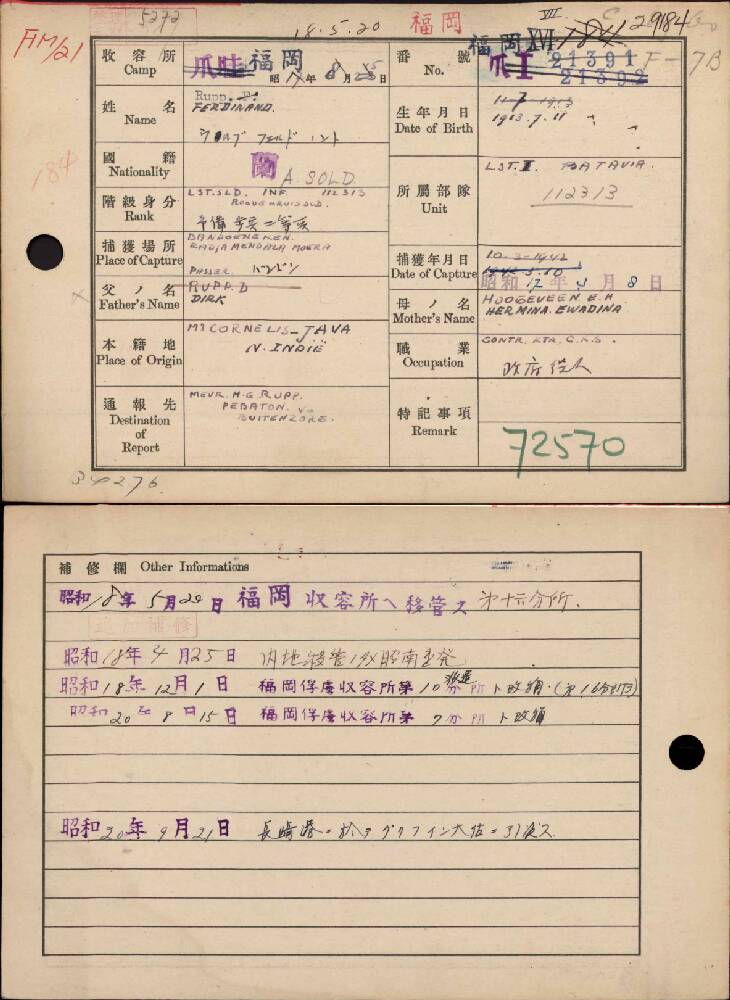 5272
18.5.20
福岡
VII
29184
FM/21
184
収容所 Camp
爪哇 福岡
昭 17年 8月 15日
番號 No.
福岡 XVI 184
爪 I 21391 F-7B
21392
姓名 Name
Rupp. F.
FERDINAND.
生年月日 Date of Birth
11-7-1913
1913.7.11
國籍 Nationality
蘭
A. SOLD.
所屬部隊 Unit
LST. II. BATAVIA.
112313
階級身分 Rank
LST. SLD. INF. 112313
捕獲場所 Place of Capture
BANDOENG KEN.
RADJA MENDALA MOERA
PASSER バンドン
捕獲年月日 Date of Capture
10-3-1942
昭和 17年 3月 8日
父ノ名 Father's Name
RUPP. D
DIRK
母ノ名 Mother's Name
HOOGEVEEN E.H
HERMINA. EWADINA
本籍地 Place of Origin
Mr CORNELIS-JAVA
N. INDIË
職業 Occupation
CONTR. KTR. C.K.S.
政府役人
通報先 Destination of Report
MEVR. H.G. RUPP.
PEBATON.
BUITENZORG.
特記事項 Remark
72570
34276
補修欄 Other Informations
昭和18年 5月20日 福岡 収容所へ移管ス 第十六分所.
昭和18年 4月25日 内地移管ノ為昭南出発
昭和18年12月1日 福岡俘虜収容所第10分所ト改編.
昭和20年8月15日 福岡俘虜収容所第7分所ト改編
昭和20年9月21日 長崎港ニ於テグリフイン大佐ニ引渡ス